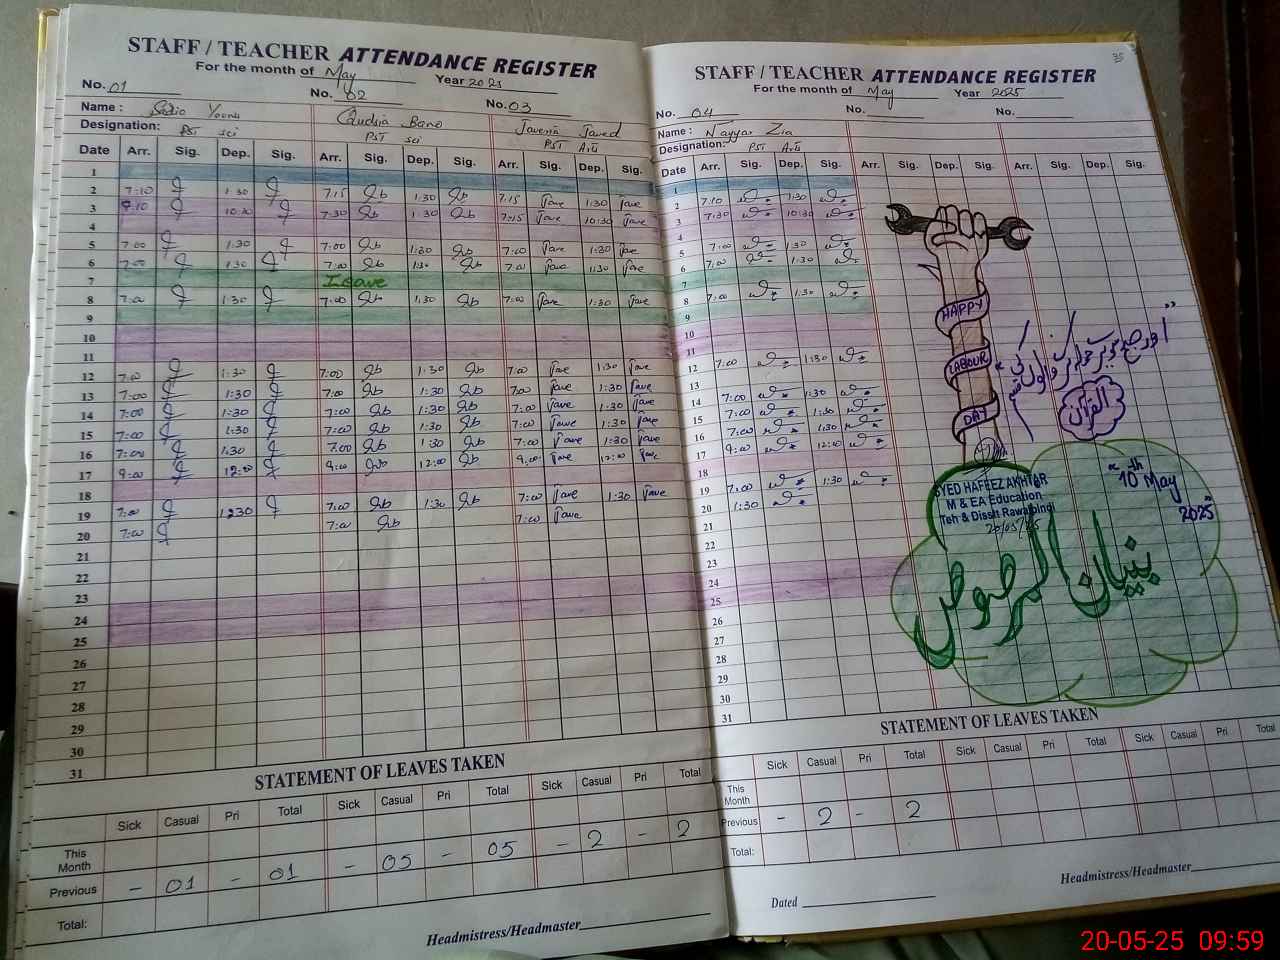 STAFF / TEACHER ATTENDANCE REGISTER
For the month of May Year 2025
No. 01 No. 02 No. 03
Name : Javeria Javed
Designation: PST sci PST sci PST
Date Arr. Sig. Dep. Sig. Arr. Sig. Dep. Sig. Arr. Sig. Dep. Sig.
1
2 7:10 1:30 7:15 1:30 7:15 1:30
3 10:30 7:30 1:30 7:15 10:30
4
5 7:00 1:30 7:00 1:30 7:00 1:30
6 7:00 1:30 7:00 1:30 7:00 1:30
7 Leave
8 7:00 1:30 7:00 1:30 7:00 1:30
9
10
11
12 7:00 1:30 7:00 1:30 7:00 1:30
13 7:00 1:30 7:00 1:30 7:00 1:30
14 7:00 1:30 7:00 1:30 7:00 1:30
15 7:00 1:30 7:00 1:30 7:00 1:30
16 7:00 1:30 7:00 1:30 7:00 1:30
17 9:00 12:00 9:00 12:00 9:00 12:00
18
19 7:00 1230 7:00 1:30 7:00 1:30
20 7:00 7:00 7:00
21
22
23
24
25
26
27
28
29
30
31
STATEMENT OF LEAVES TAKEN
Sick Casual Pri Total Sick Casual Pri Total Sick Casual Pri Total
This Month
Previous - 01 - 01 - 05 - 05 - 2 - 2
Total:
Headmistress/Headmaster
35
STAFF / TEACHER ATTENDANCE REGISTER
For the month of May Year 2025
No. 04 No. No.
Name : Nayyar Zia
Designation: PST
Date Arr. Sig. Dep. Sig. Arr. Sig. Dep. Sig. Arr. Sig. Dep. Sig.
1
2 7:10 1:30
3 7:30 10:30
4
5 7:00 1:30
6 7:00 1:30
7
8 7:00 1:30
9
10
11
12 7:00 1:30
13
14 7:00 1:30
15 7:00 1:30
16 7:00 1:30
17 9:00 12:00
18
19 7:00 1:30
20 1:30
21
22
23
24
25
26
27
28
29
30
31
HAPPY
LABOUR
DAY
القرآن
SYED HAFEEZ AKHTAR
M & EA Education
Teh & Disstt Rawalpindi
20/05/25
"10th May
2025"
بنیان المرصوص
STATEMENT OF LEAVES TAKEN
Sick Casual Pri Total Sick Casual Pri Total Sick Casual Pri Total
This Month
Previous - 2 - 2
Total:
Headmistress/Headmaster
Dated
20-05-25 09:59